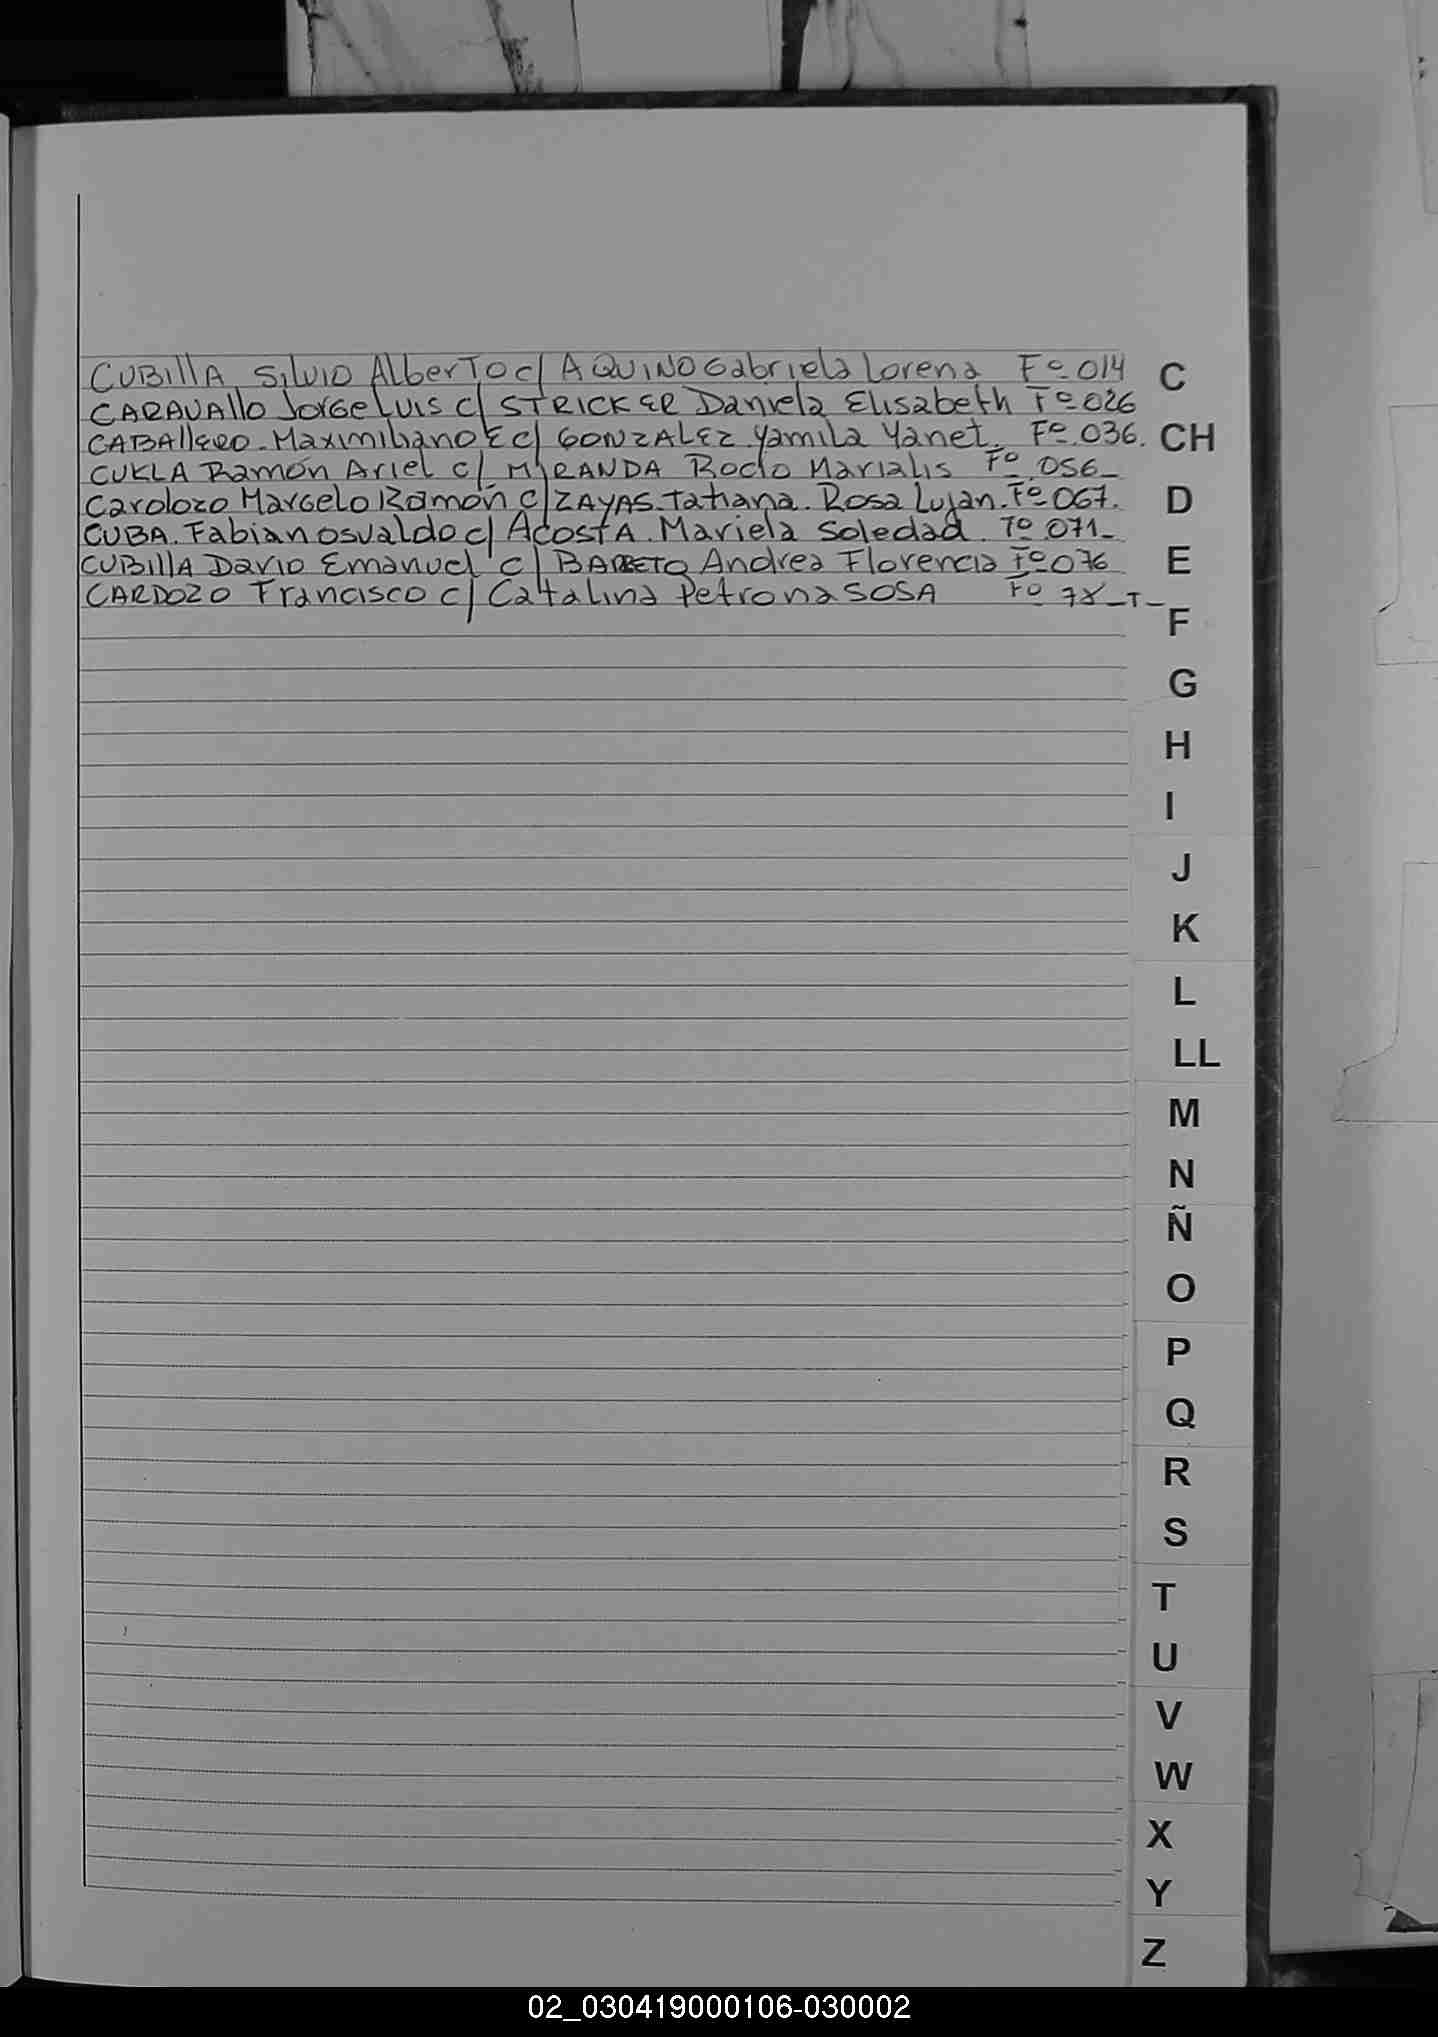 CUBIllA SILVIO AlberTO c/ AQUINO Gabriela Lorena Fº 014
CARAVAllo Jorge Luis c/ STRICKER Daniela Elisabeth Fº 026
CABAllERO. Maximiliano E c/ GONZALEZ Yamila Yanet. Fº 036.
CUKLA Ramón Ariel c/ MIRANDA Rocío Marialis Fº 056_
Carolozo Marcelo Ramón c/ ZAYAS. Tatiana. Rosa Lujan. Fº 067.
CUBA. Fabian Osvaldo c/ ACOSTA. Mariela Soledad. Fº 071_
CUBIllA Dario Emanuel c/ BARRETO Andrea Florencia Fº 076
CARDOZO Francisco c/ Catalina Petrona SOSA Fº 78_T_
C
CH
D
E
F
G
H
I
J
K
L
LL
M
N
Ñ
O
P
Q
R
S
T
U
V
W
X
Y
Z
02_030419000106-030002